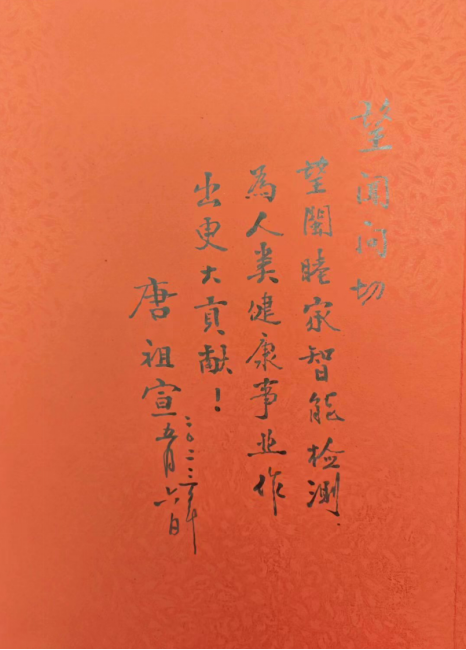 望闻问切
望閤睦家智能检测
為人类健康事业作
出更大貢献！
唐祖宣
二〇二三年
五月六日